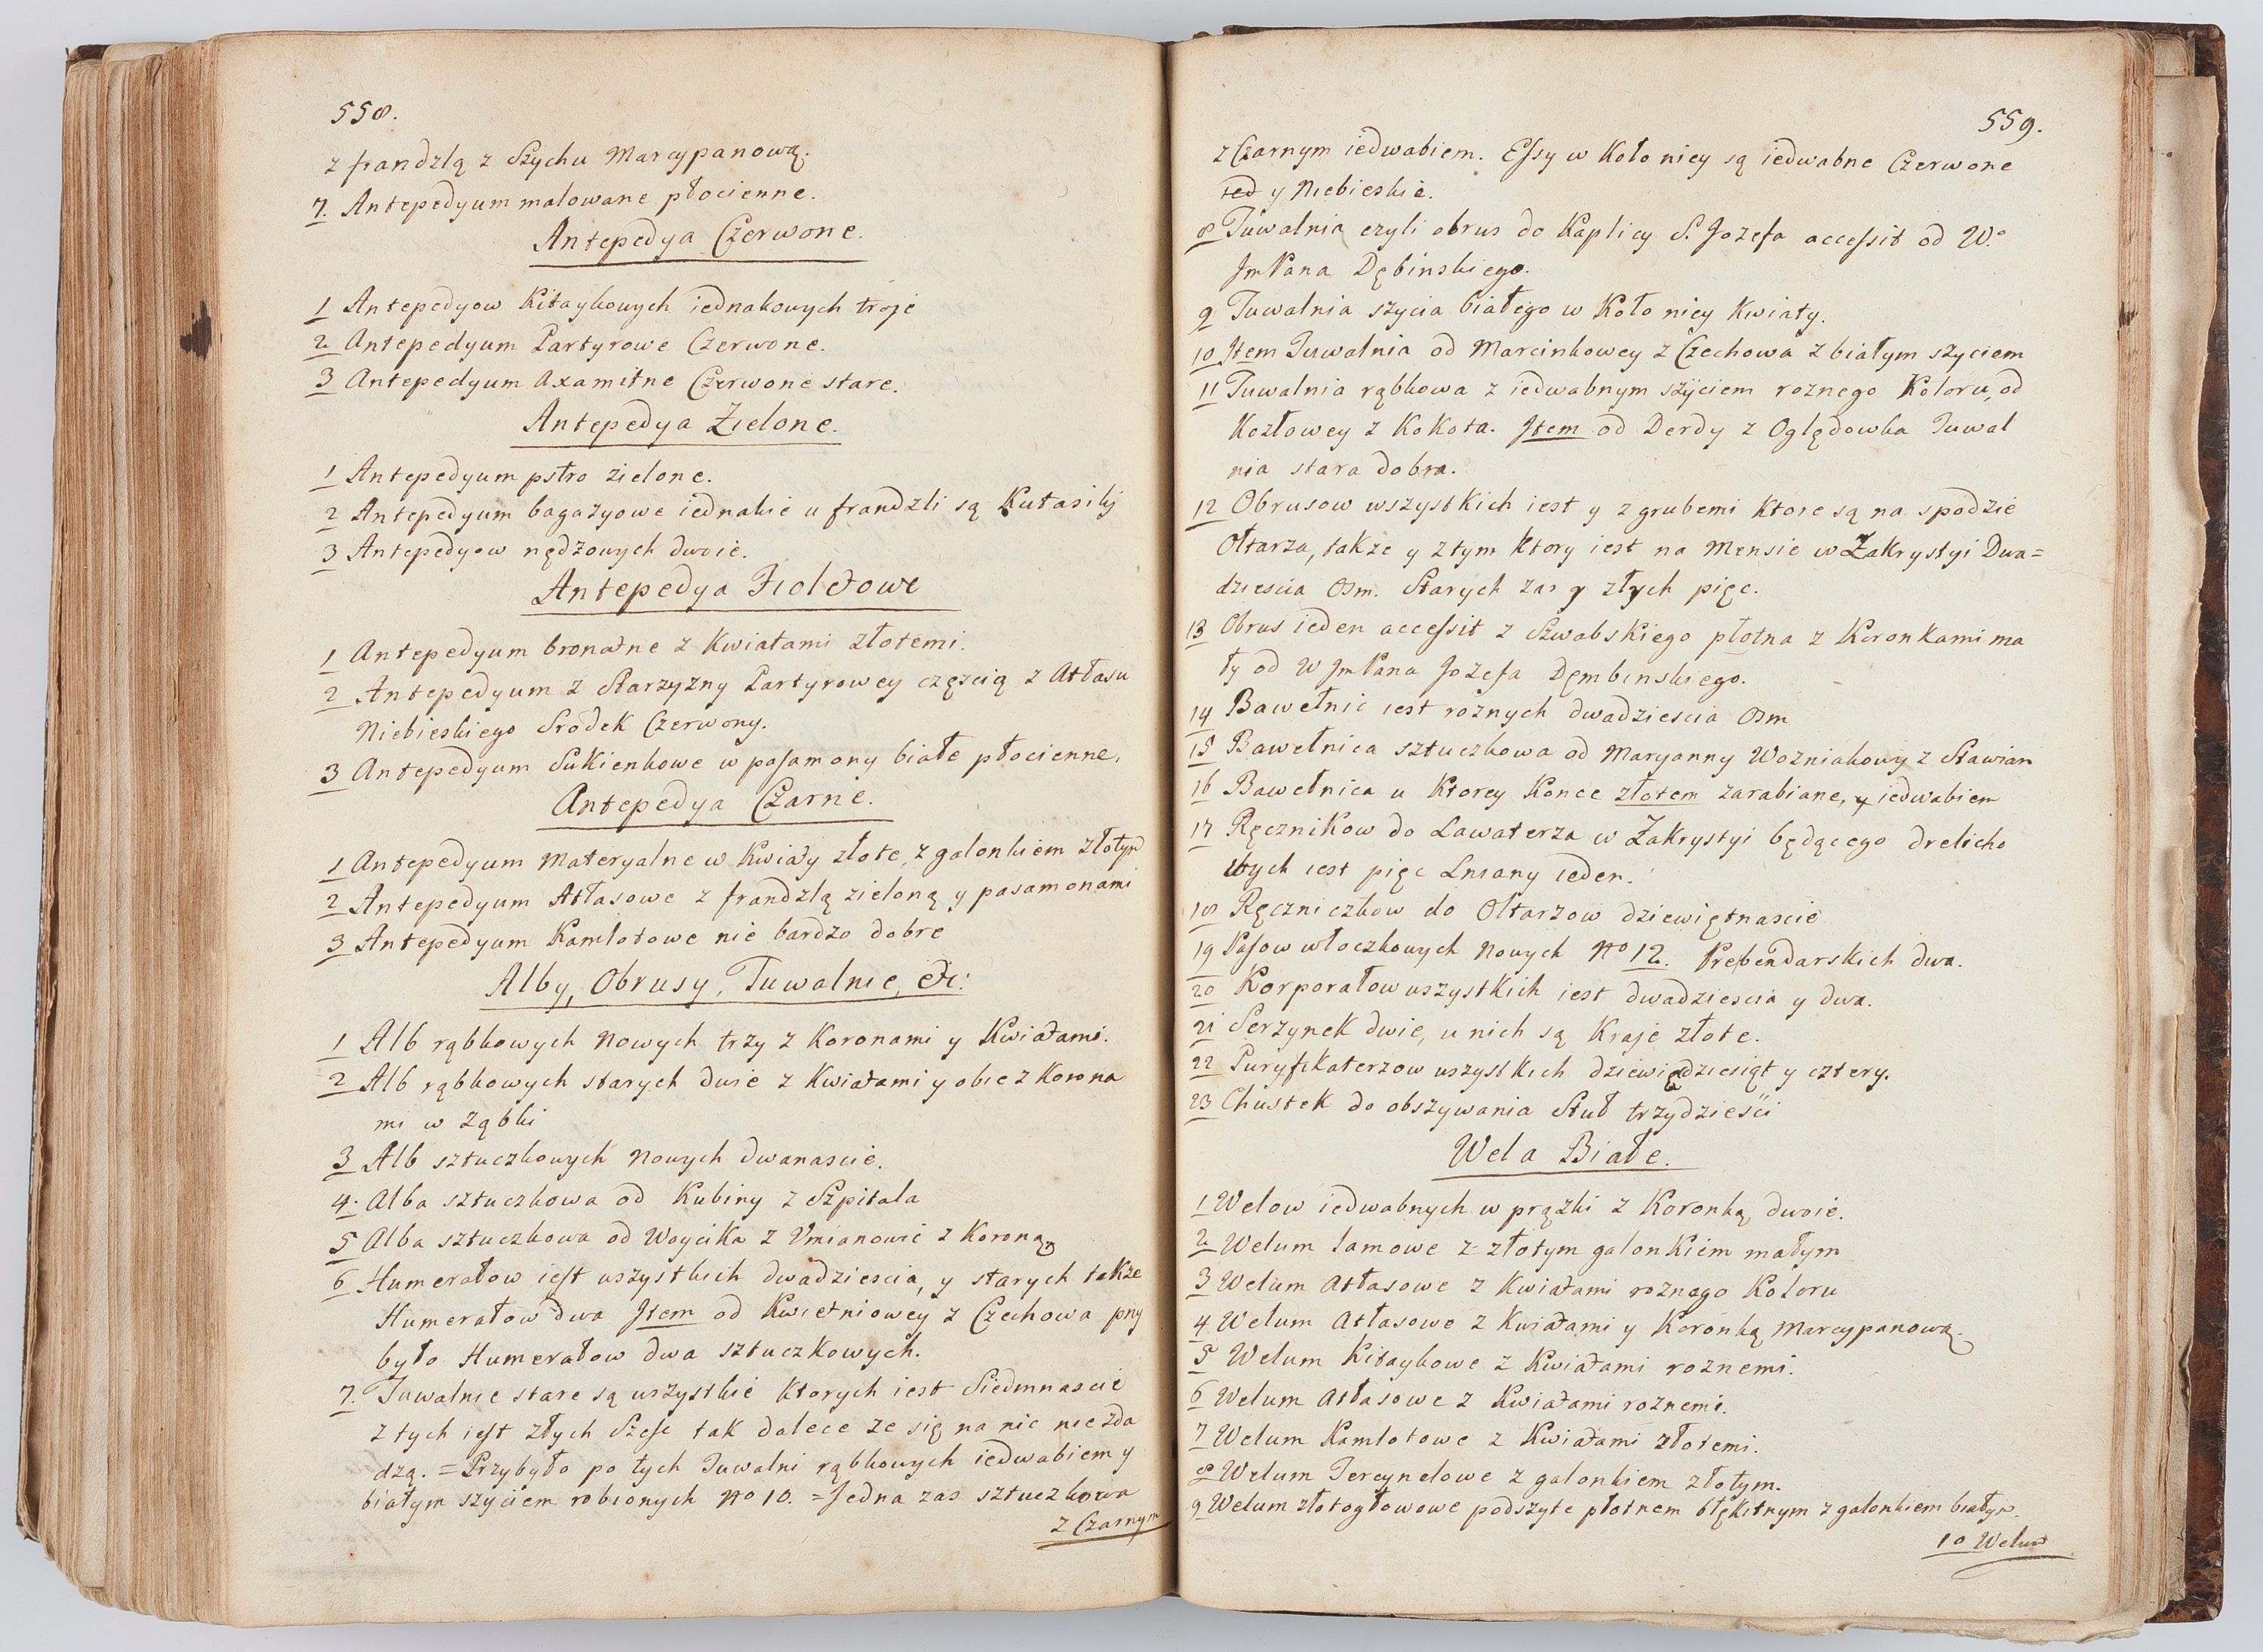 558.
z frandzlą z Szychu Marcypanową.
7. Antepedyum malowane płocienne.
Antepedya Czerwone.
1 Antepedyow Kitaykowych iednakowych troje
2 Antepedyum Partyrowe Czerwone.
3 Antepedyum Axamitne Czerwone stare.
Antepedya Zielone.
1 Antepedyum pstro zielone.
2 Antepedyum bagazyowe iednakie u frandzli są Kutasiky
3 Antepedyow nędzowych dwoie.
Antepedya Fioletowe
1 Antepedyum bronatne z Kwiatami złotemi.
2 Antepedyum z Starzyzny Partyrowey częscią z Atłasu
Niebieskiego Srodek Czerwony.
3 Antepedyum Sukienkowe w pasamony białe płocienne.
Antepedya Czarne.
1 Antepedyum Materyalne w Kwiaty złote, z galonkiem złotym
2 Antepedyum Atłasowe z frandzlą zieloną y pasamonami
3 Antepedyum Kamlotowe nie bardzo dobre
Alby, Obrusy, Tuwalnie, &c:
1 Alb rąbkowych Nowych trzy z Koronami y Kwiatami.
2 Alb rąbkowych starych dwie z Kwiatami y obie z Korona
mi w Ząbki
3 Alb sztuczkowych Nowych dwanascie.
4. Alba sztuczkowa od Kubiny z Szpitala
5 Alba sztuczkowa od Woycika z Vmianowic z Koroną
6 Humerałow iest wszystkich dwadziescia, y starych także
Humerałow dwa Item od Kwietniowey z Czechowa przy
było Humerałow dwa sztuczkowych.
7. Tuwalnie stare są wszystkie Ktorych iest Siedmnascie
z tych iest złych Szesc tak dalece ze się na nic nie zda
dzą. = Przybyło po tych Tuwalni rąbkowych iedwabiem y
białym szyciem robionych No 10. = Jedna zas sztuczkowa
z Czarnym
559.
z Czarnym iedwabiem. Essy w Koło niey są iedwabne Czerwone
ied y Niebieskie.
8 Tuwalnia czyli obrus do Kaplicy S. Jozefa accessit od W.o
Jm Pana Dębinskiego.
9 Tuwalnia szycia białego w Koło niey Kwiaty.
10 Item Tuwalnia od Marcinkowey z Czechowa z białym szyciem
11 Tuwalnia rąbkowa z iedwabnym szyciem roznego Koloru, od
Kozłowey z Kokota. Item od Derdy z Oględowka Tuwal
nia stara dobra.
12 Obrusow wszystkich iest y z grubemi Ktore są na spodzie
Ołtarza, takze y z tym Ktory iest na Mensie w Zakrystyi Dwa=
dziescia Osm. Starych zas y złych pięc.
13 Obrus ieden accessit z Szwabskiego płotna z Koronkami ma
ły od W Jm Pana Jozefa Dembinskiego.
14 Bawełnic iest roznych dwadziescia Osm
15 Bawełnica sztuczkowa od Maryanny Wozniakowy z Stawian
16 Bawełnica u Ktorey Konce złotem zarabiane, y iedwabiem
17 Ręcznikow do Lawaterza w Zakrystyi będącego drelicho
wych iest pięc Lniany ieden.
18 Ręczniczkow do Ołtarzow dziewiętnascie
19 Pasow włoczkowych Nowych No 12. Prebendarskich dwa.
20 Korporałow wszystkich iest dwadziescia y dwa.
21 Serzynek dwie, u nich są Kraje złote.
22 Puryfikaterzow wszystkich dziewiędziesiąt y cztery.
23 Chustek do obszywania Stuł trzydziesci
Wela Białe.
1 Welow iedwabnych w prązki z Koronką dwoie.
2 Welum lamowe z złotym galonkiem małym
3 Welum Atłasowe z Kwiatami roznego Koloru
4 Welum Atłasowe z Kwiatami y Koronką Marcypanową.
5 Welum Kitaykowe z Kwiatami roznemi.
6 Welum Atłasowe z Kwiatami roznemi.
7 Welum Kamlotowe z Kwiatami złotemi.
8 Welum Tercynelowe z galonkiem złotym.
9 Welum złotogłowowe podszyte płotnem błękitnym z galonkiem białym.
10 Welum